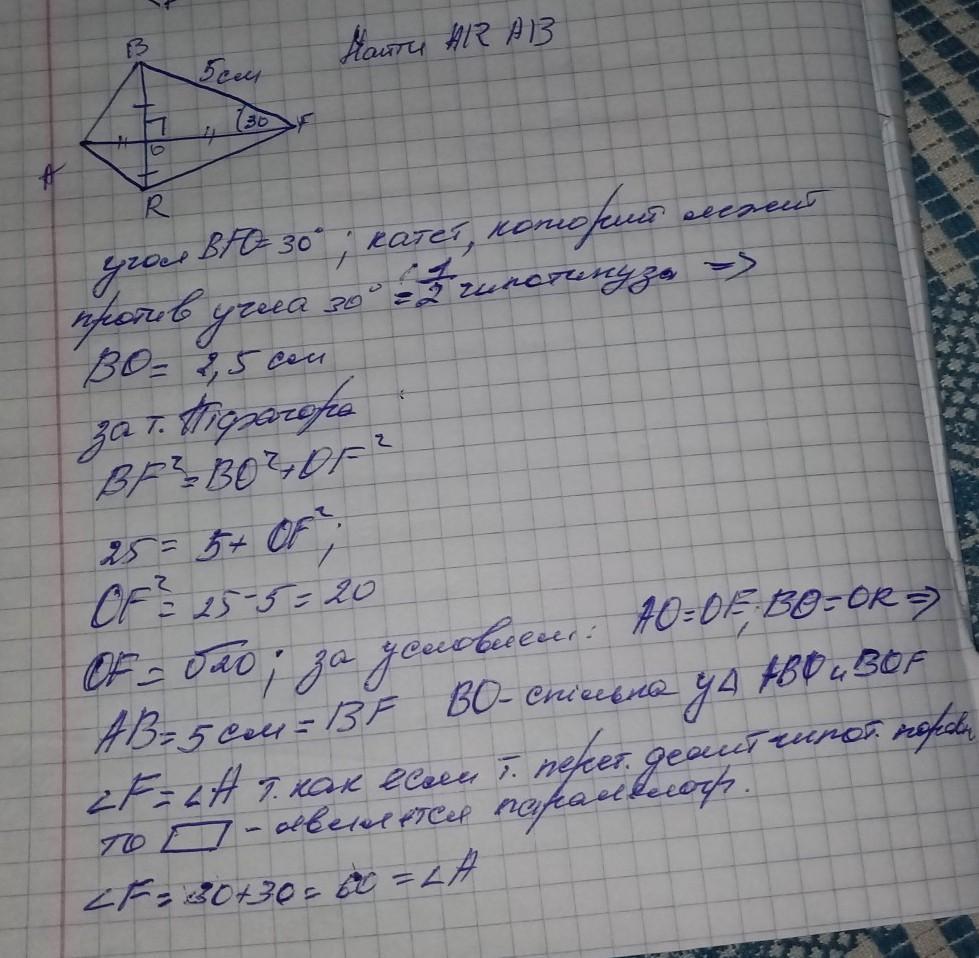 Найти AR AB
B
5см
30
F
A
O
R
угол BFO = 30° ; катет, который лежит
против угла 30° = 1/2 гипотинуза =>
BO = 2,5 см
за т. Піфагора :
BF² = BO² + OF²
25 = 5 + OF² ;
OF² = 25 - 5 = 20
OF = √20 ; за условием : AO = OF ; BO = OR =>
AB = 5 см = BF BO - спільна у Δ ABO и BOF
∠F = ∠A т. как если т. перет. делит гипот. поровн
то ▭ - является паралелогр.
∠F = 30 + 30 = 60 = ∠A